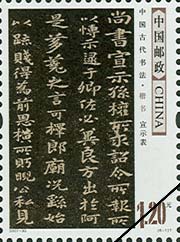 中国邮政
CHINA
中国古代书法·楷书 宣示表
尚書宣示孫權所求詔令所報所
以博示逮于卿佐必冀良方出於阿
是芻蕘之言可擇郎廟況繇始
以疏賤得為前恩橫所盱睨公私見
1.20元